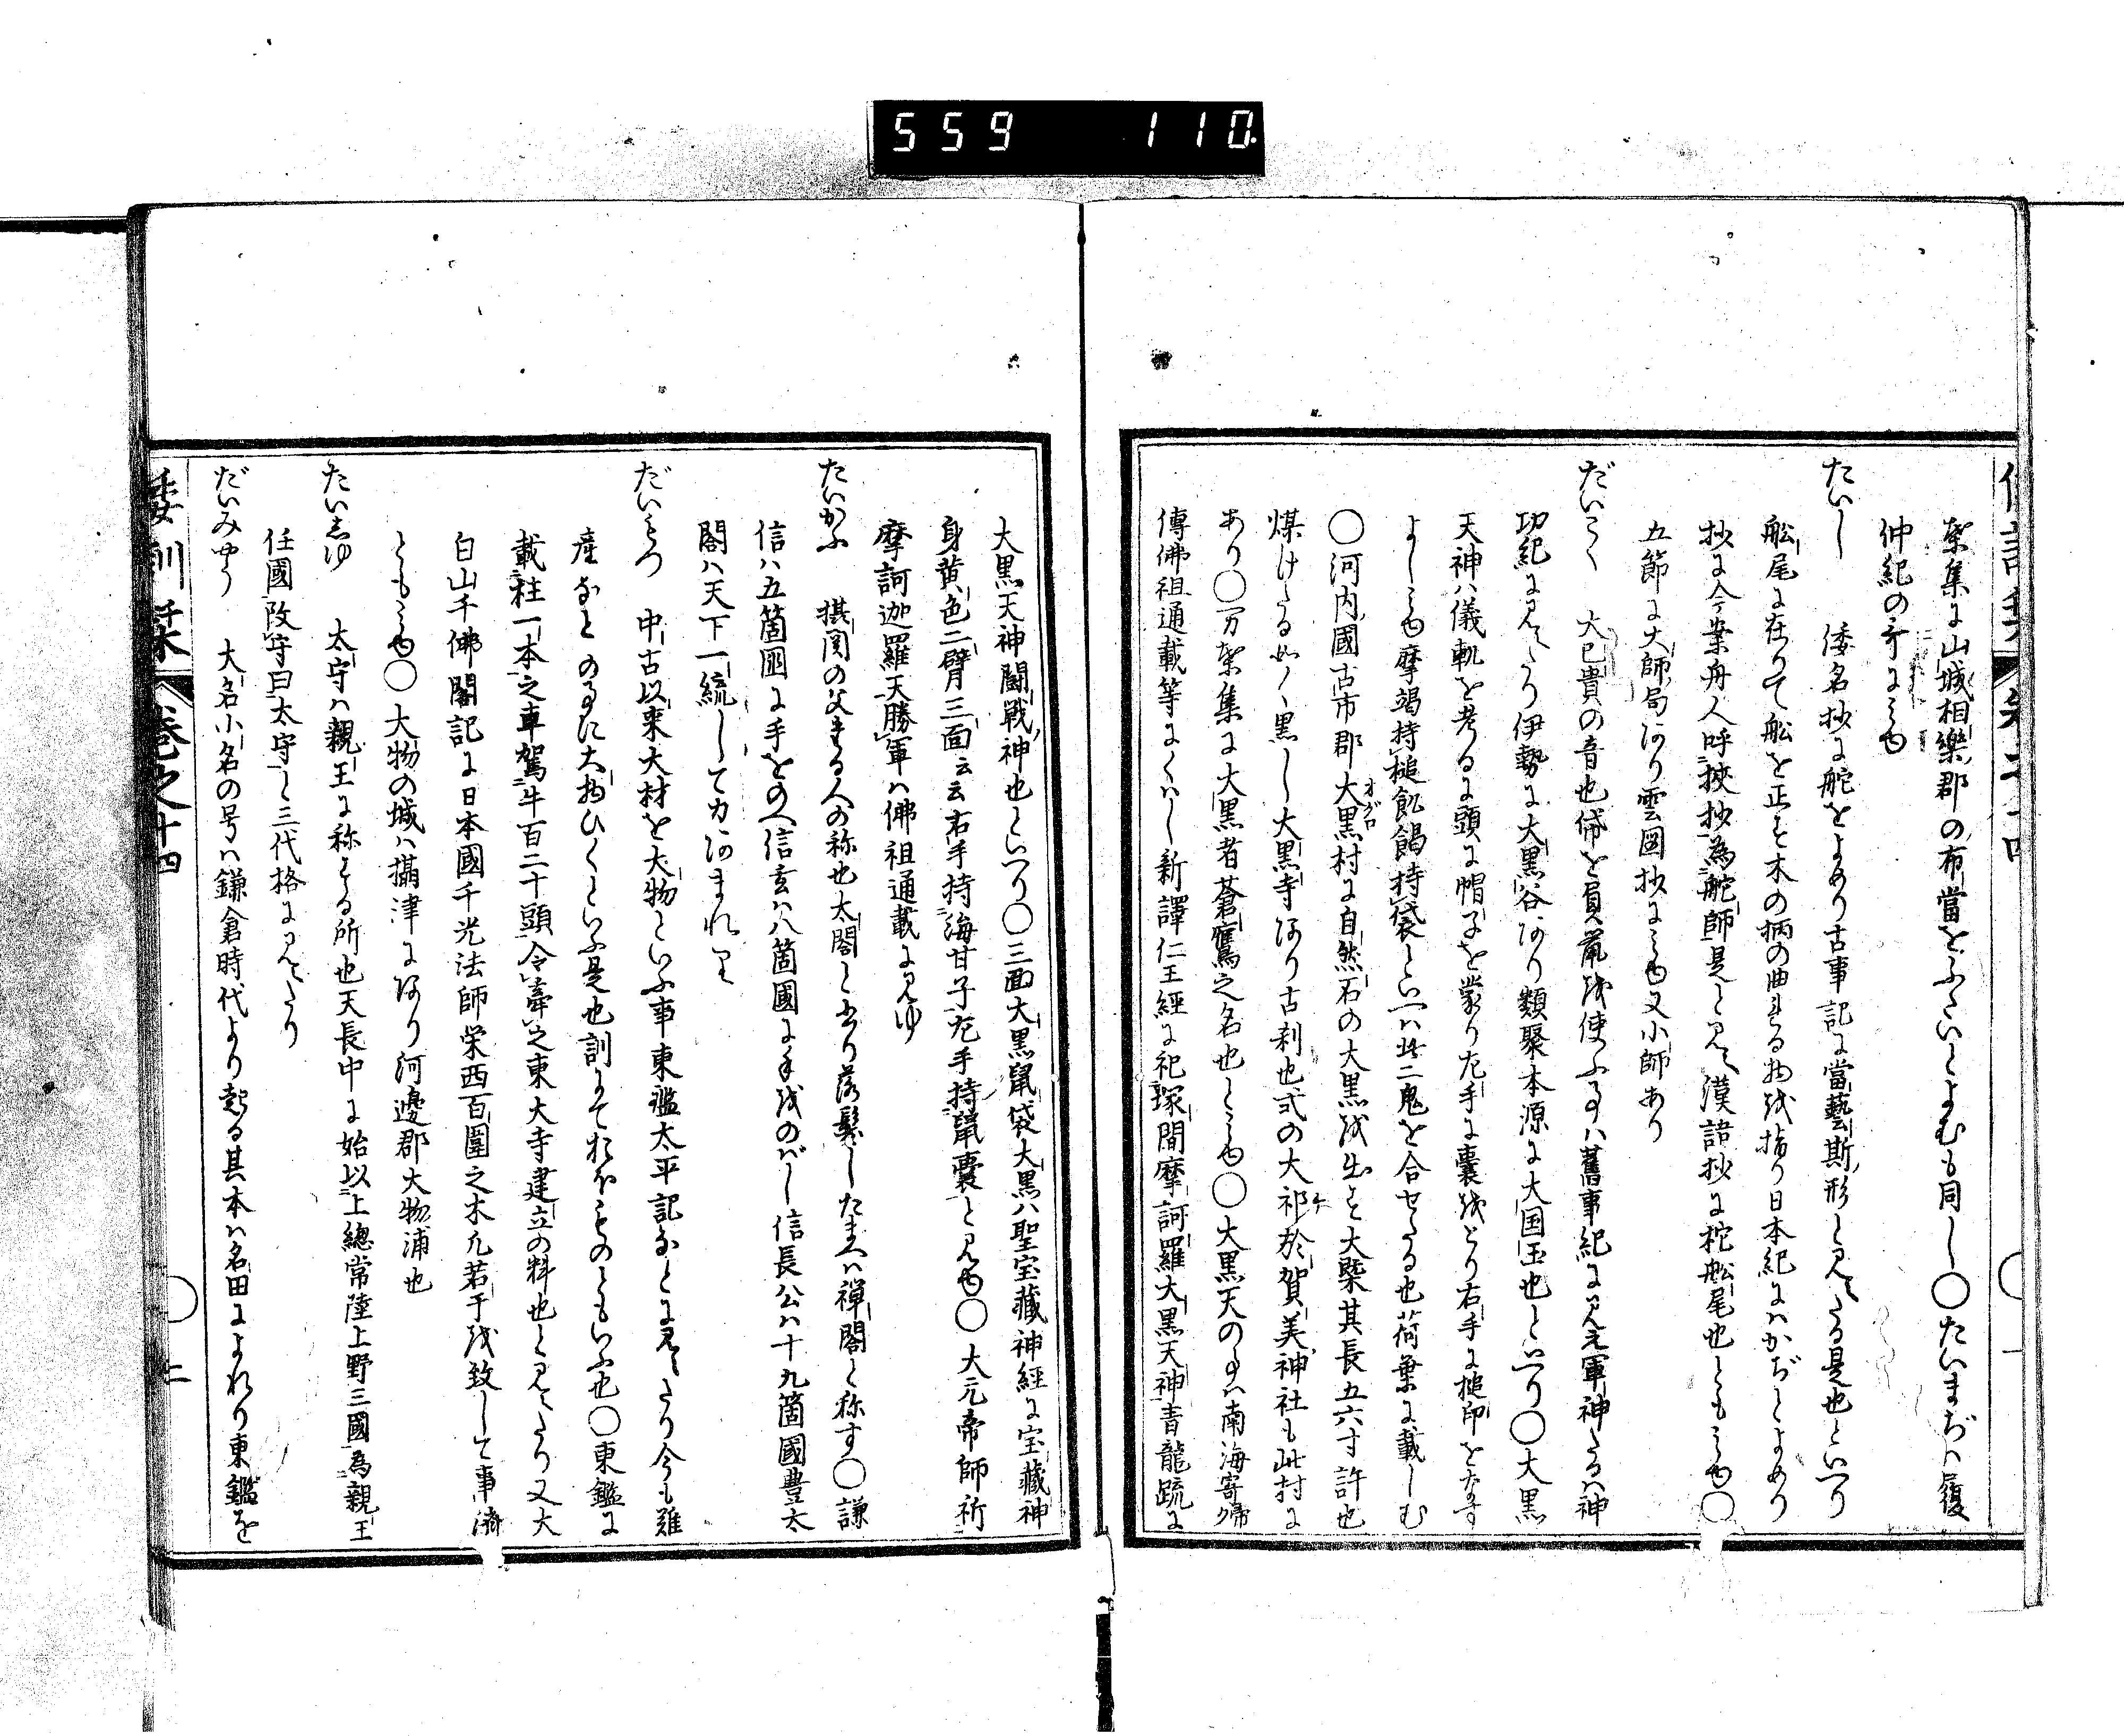 559 110
葉集に山城相樂郡の布當をふたいとよむも同し〇たいまぢハ履
仲紀の哥にみゆ
たいし 倭名抄に舵をよめり古事記に當藝斯形と見えたる是也といへり
舩尾に在りて舩を正す木の柄の曲れる物を指り日本紀にハかぢとよめり
抄に今案舟人呼挾抄為舵師是と見え漢語抄に柁舩尾也ともみゆ〇
五節に大師局あり雲圖抄にみゆ又小師あり
だいこく 大已貴の音也俗を負鼠を使ふ事ハ舊事紀に見え軍神たるハ神
功紀に見えたり伊勢に大黒谷あり類聚本源に大国玉也といへり〇大黒
天神ハ儀軌を考るに頭に帽子を蒙り左手に嚢をとり右手に槌印をなす
よしみゆ摩竭持槌飢餲持袋といへハ此二鬼を合せたる也荷葉に載しむ
〇河内國古市郡大黒村に自然石の大黒を出す大槩其長五六寸許也
オグロ
煤けたる如く黒し大黒寺あり古刹也式の大祁於賀美神社も此村に
あり〇万葉集に大黒者蒼鷹之名也とみゆ〇大黒天の事ハ南海寄帰
傳佛祖通載等にくハし新譯仁王經に祀塚間摩訶羅大黒天神青龍疏に
大黒天神鬪戰神也といへり〇三面大黒鼠袋大黒ハ聖宝藏神經に宝藏神
身黄色二臂三面云云右手持海甘子左手持鼠嚢と見ゆ〇大元帝師祈
摩訶迦羅天勝軍ハ佛祖通載に見ゆ
たいかふ 摂関の父まる人の称也太閤と書り落髪したまへハ禅閤と称す〇謙
信ハ五箇國に手をのへ信玄ハ八箇國に手をのバし信長公ハ十九箇國豊太
閤ハ天下一統して力あまれり
だいもつ 中古以来大材を大物といふ事東鑑太平記なとに見えたり今も難
産なとの事に大物ひくといふ是也訓にておほものともいふ也〇東鑑に
載柱一本之車駕牛百二十頭令牽之東大寺建立の料也と見えたり又大
白山千佛閣記に日本國千光法師栄西百圍之木凢若干を致して事済
ともみゆ〇大物の城ハ攝津にあり河邊郡大物浦也
たいしゆ 太守ハ親王に称する所也天長中に始以上總常陸上野三國為親王
任國改守曰太守と三代格に見えたり
だいみやう 大名小名の号ハ鎌倉時代より起る其本ハ名田によれり東鑑を
倭訓栞 巻之十四 〇 二